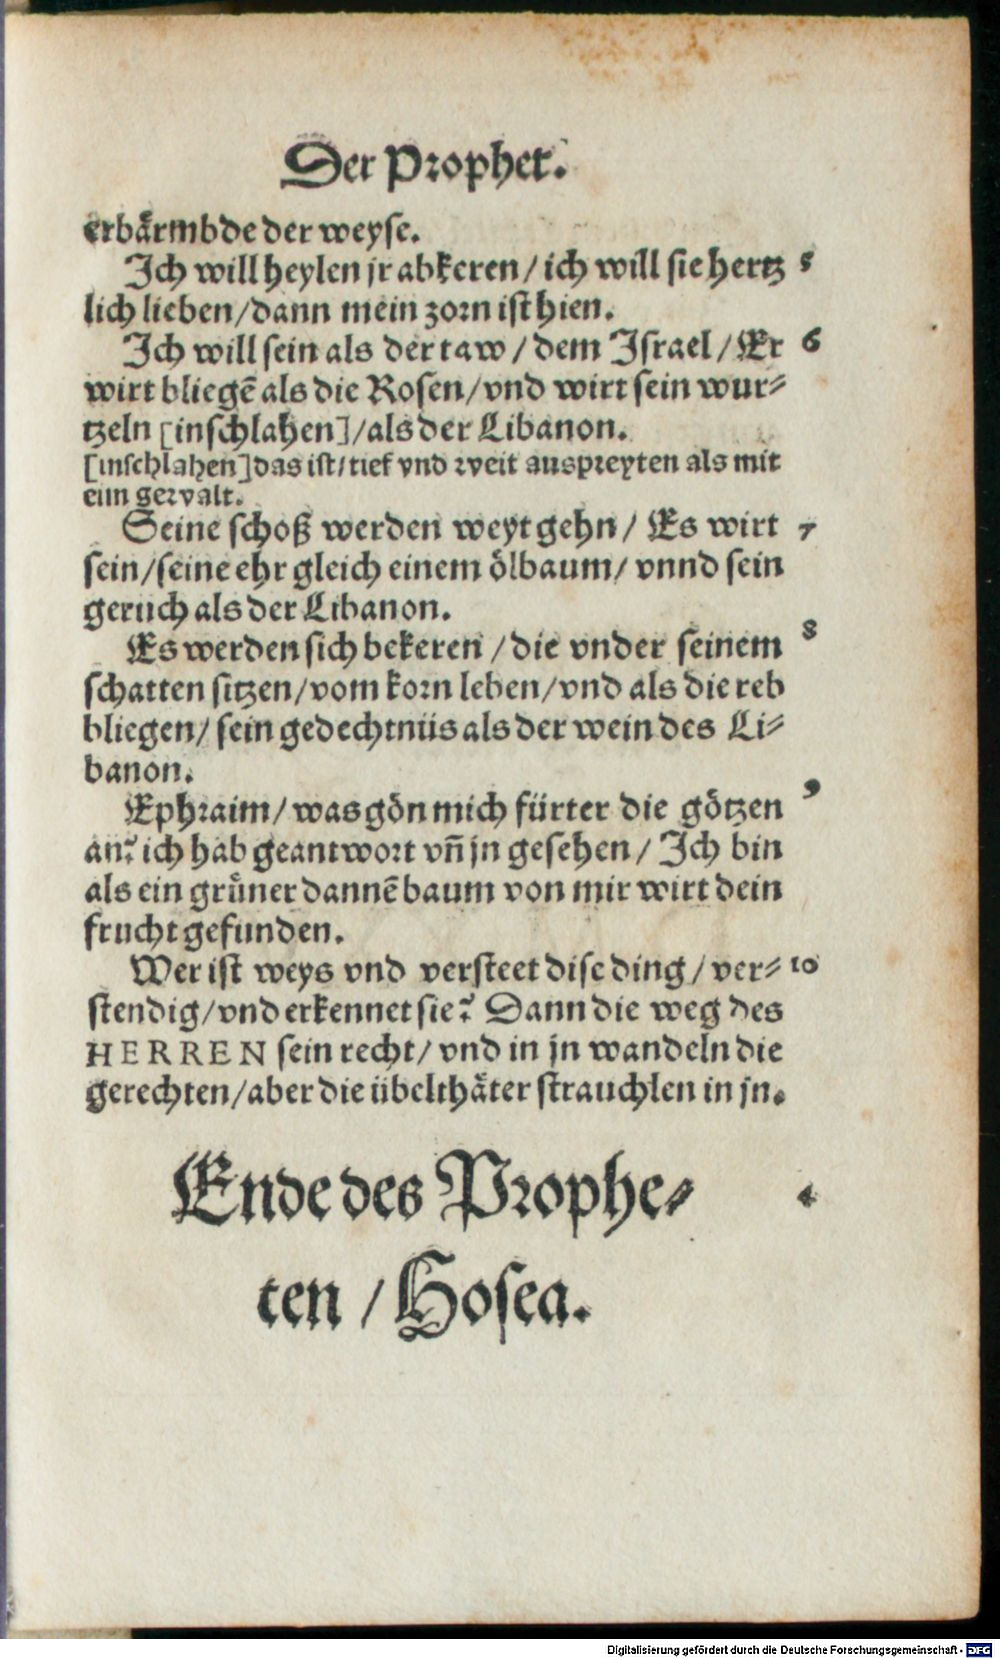 Der Prophet.
erbaͤrmbde der weyse.
Ich will heylen jr abkeren / ich will sie hertz 5
lich lieben / dann mein zorn ist hien.
Ich will sein als der taw / dem Israel / Er 6
wirt bliegē als die Rosen / vnd wirt sein wur⸗
tzeln [inschlahen] / als der Libanon.
[inschlahen] das ist / tief vnd weit auspreyten als mit
eim gewalt.
Seine schoß werden weyt gehn / Es wirt 7
sein / seine ehr gleich einem ölbaum / vnnd sein
geruch als der Libanon.
Es werden sich bekeren / die vnder seinem 8
schatten sitzen / vom korn leben / vnd als die reb
bliegen / sein gedechtnüs als der wein des Li⸗
banon.
Ephraim / was gön mich fürter die götzen 9
an? ich hab geantwort vn̄ jn gesehen / Ich bin
als ein gruͤner dannēbaum von mir wirt dein
frucht gefunden.
Wer ist weys vnd versteet dise ding / ver⸗ 10
stendig / vnd erkennet sie? Dann die weg des
HERREN sein recht / vnd in jn wandeln die
gerechten / aber die übelthaͤter strauchlen in jn.
Ende des Prophe⸗
ten / Hosea.
Digitalisierung gefördert durch die Deutsche Forschungsgemeinschaft - DFG